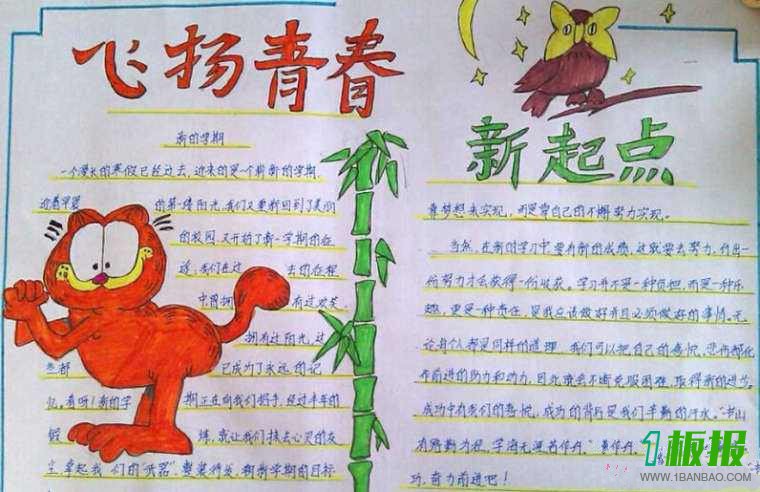 飞扬青春
新的学期
一个漫长的寒假已经过去，迎来的是一个崭新的学期.
迎着早晨的第一缕阳光，我们又重新回到了美丽
的校园，又开始了新一学期的征
途，我们在过去的征程
中曾拥有过欢笑，
拥有过阳光，这
些都已成为了永远的记
忆。看呐！新的学期正在向我们招手，经过半年的
锻炼，就让我们抹去心灵的灰
尘，拿起我们的“武器”，整装待发，朝新学期的目标
新起点
靠梦想去实现，而是靠自己的不懈努力实现。
当然，在新的学习中要有新的成绩，这就要去努力，付出一
份努力才会获得一份收获。学习并不是一种负担，而是一种乐
趣，更是一种责任，是我应该做好并且必须做好的事情。无
论每个人都是同样的道理，我们可以把自己的喜悦，悲伤都化
作前进的助力和动力，因此我会不断克服困难，取得新的进步。
成功中有我们的喜悦，成功的背后是我们辛勤的汗水。“书山
有路勤为径，学海无涯苦作舟。”
功，奋力前进吧！
1板报
WWW.1BANBAO.COM